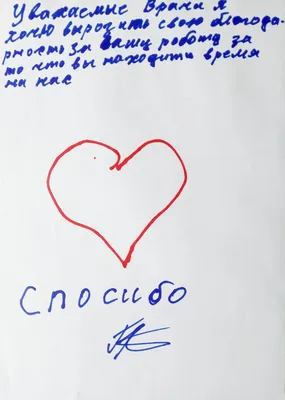 Уважаемые Врачи я
хочю выразить свою благода-
рность за Вашу работу за
то что вы находити время
на нас
Спосибо